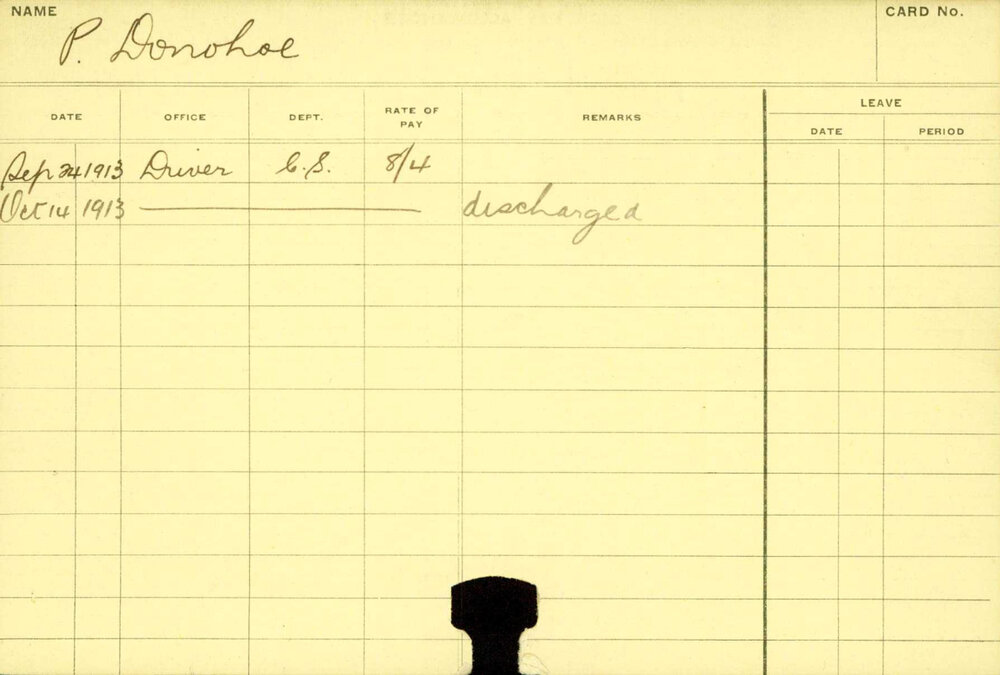 NAME
CARD No.
P. Donohoe
DATE OFFICE DEPT. RATE OF PAY REMARKS LEAVE
DATE PERIOD
Sep 24 1913 Driver C.S. 8/4
Oct 14 1913 discharged